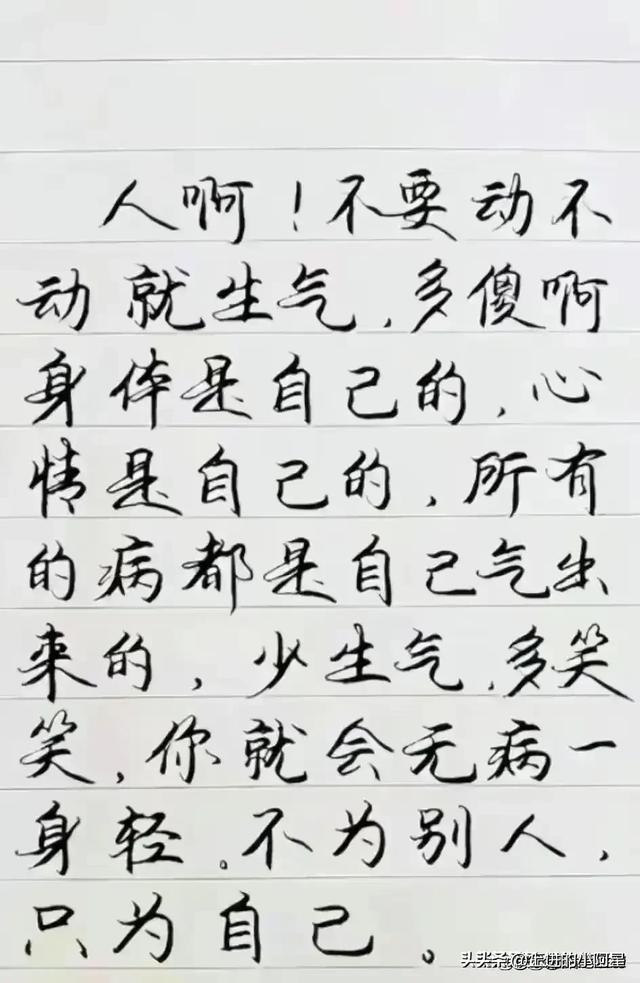 人啊！不要动不
动就生气，多傻啊
身体是自己的，心
情是自己的，所有
的病都是自己气出
来的，少生气，多笑
笑，你就会无病一
身轻。不为别人，
只为自己。
头条